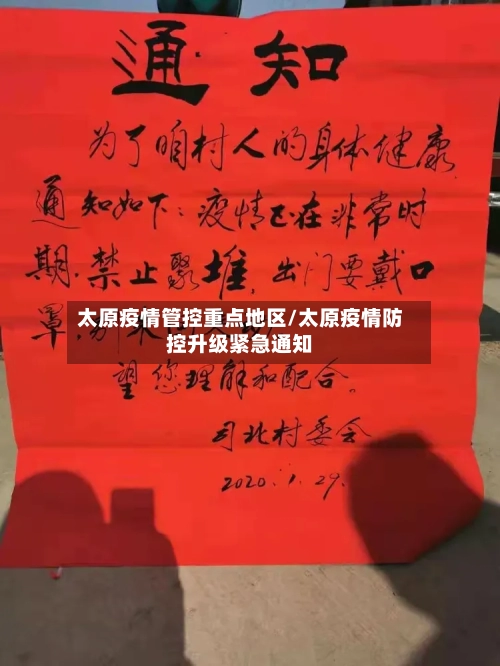 通知
为了咱村人的身体健康.
通知如下:疫情正在非常时
期.禁止聚堆,出门要戴口
罩,
太原疫情管控重点地区/太原疫情防
控升级紧急通知
望您理解和配合。
司北村委会
2020.1.29.